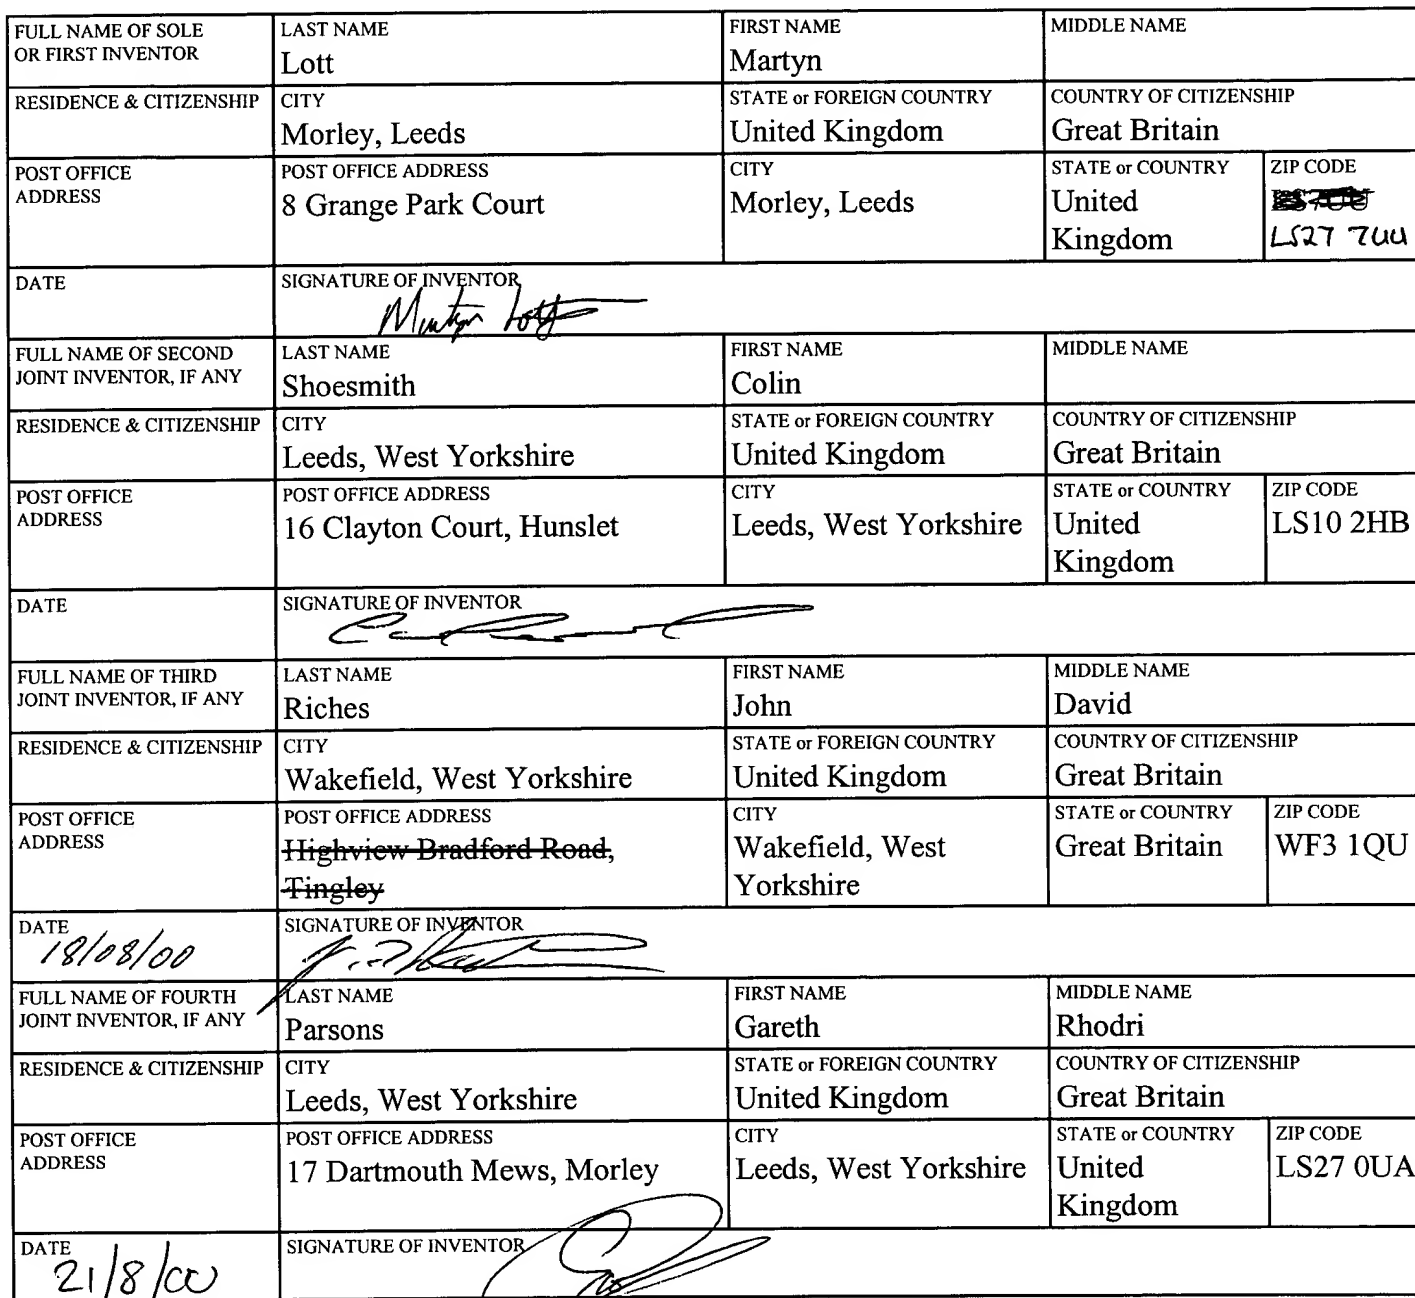 FULL NAME OF SOLE
OR FIRST INVENTOR
LAST NAME
Lott
FIRST NAME
Martyn
MIDDLE NAME
RESIDENCE & CITIZENSHIP
CITY
Morley, Leeds
STATE or FOREIGN COUNTRY
United Kingdom
COUNTRY OF CITIZENSHIP
Great Britain
POST OFFICE
ADDRESS
POST OFFICE ADDRESS
8 Grange Park Court
CITY
Morley, Leeds
STATE or COUNTRY
United
Kingdom
ZIP CODE
LS27 7UU
DATE
SIGNATURE OF INVENTOR
Martyn Lott
FULL NAME OF SECOND
JOINT INVENTOR, IF ANY
LAST NAME
Shoesmith
FIRST NAME
Colin
MIDDLE NAME
RESIDENCE & CITIZENSHIP
CITY
Leeds, West Yorkshire
STATE or FOREIGN COUNTRY
United Kingdom
COUNTRY OF CITIZENSHIP
Great Britain
POST OFFICE
ADDRESS
POST OFFICE ADDRESS
16 Clayton Court, Hunslet
CITY
Leeds, West Yorkshire
STATE or COUNTRY
United
Kingdom
ZIP CODE
LS10 2HB
DATE
SIGNATURE OF INVENTOR
FULL NAME OF THIRD
JOINT INVENTOR, IF ANY
LAST NAME
Riches
FIRST NAME
John
MIDDLE NAME
David
RESIDENCE & CITIZENSHIP
CITY
Wakefield, West Yorkshire
STATE or FOREIGN COUNTRY
United Kingdom
COUNTRY OF CITIZENSHIP
Great Britain
POST OFFICE
ADDRESS
POST OFFICE ADDRESS
Highview Bradford Road,
Tingley
CITY
Wakefield, West
Yorkshire
STATE or COUNTRY
Great Britain
ZIP CODE
WF3 1QU
DATE
18/08/00
SIGNATURE OF INVENTOR
FULL NAME OF FOURTH
JOINT INVENTOR, IF ANY
LAST NAME
Parsons
FIRST NAME
Gareth
MIDDLE NAME
Rhodri
RESIDENCE & CITIZENSHIP
CITY
Leeds, West Yorkshire
STATE or FOREIGN COUNTRY
United Kingdom
COUNTRY OF CITIZENSHIP
Great Britain
POST OFFICE
ADDRESS
POST OFFICE ADDRESS
17 Dartmouth Mews, Morley
CITY
Leeds, West Yorkshire
STATE or COUNTRY
United
Kingdom
ZIP CODE
LS27 0UA
DATE
21/8/00
SIGNATURE OF INVENTOR